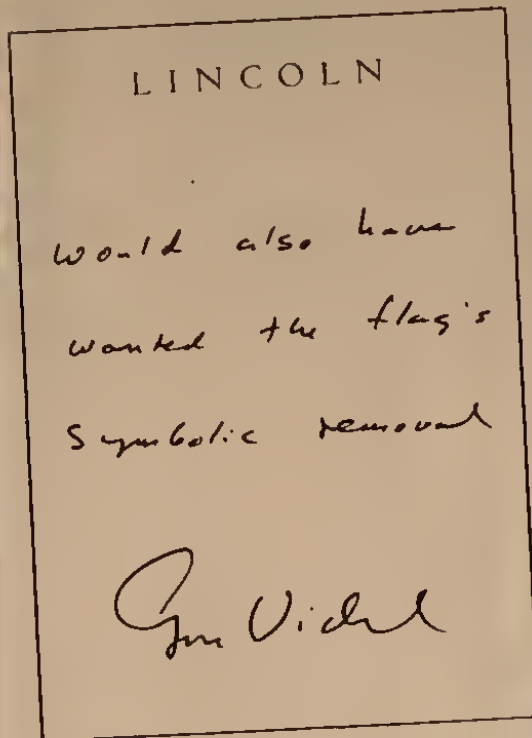 LINCOLN
would also have
wanted the flag's
symbolic removal
Gore Vidal